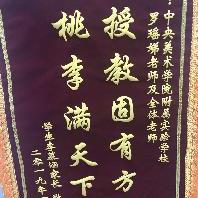 ：中央美术学院附属实验学校
罗瑶娣老师及全体老师
授教固有方
桃李满天下
学生李慕涵家长
二零一九年